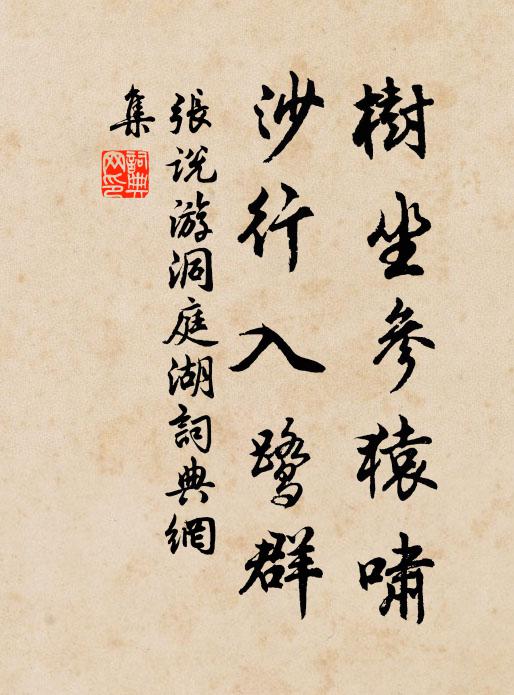 樹坐參猿嘯
沙行入鷺群
張説游洞庭湖詞典網
集
詞典
网印